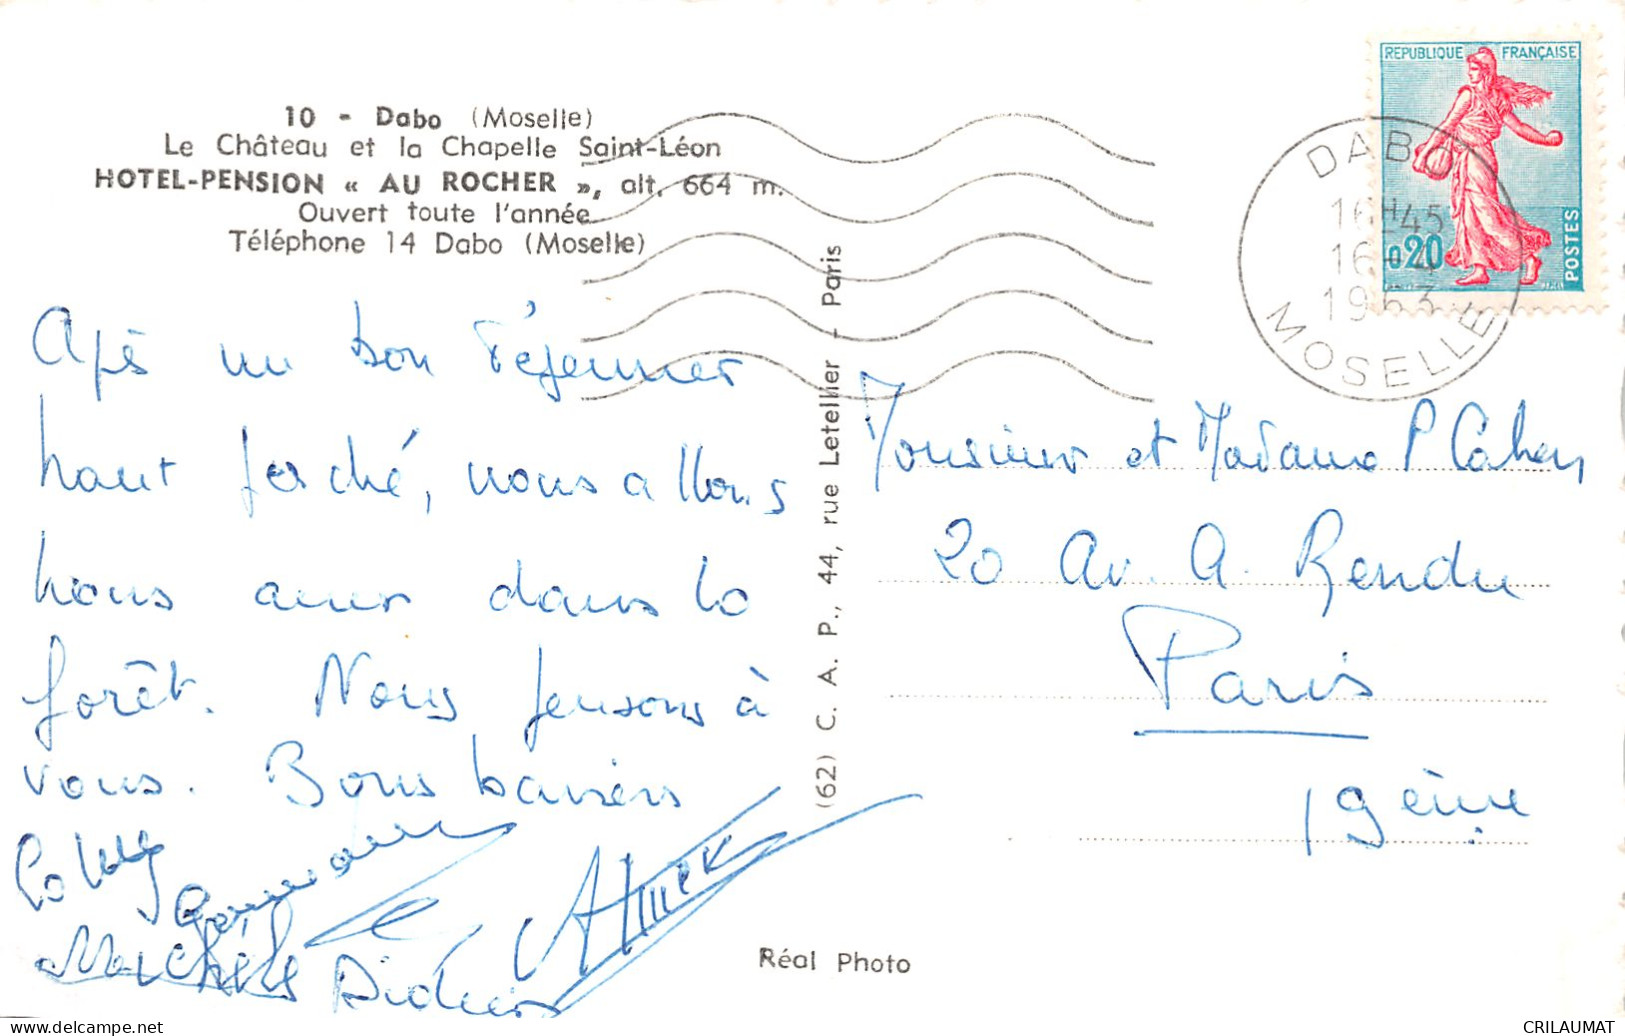 10 - Dabo (Moselle)
Le Château et la Chapelle Saint-Léon
HOTEL-PENSION « AU ROCHER », alt. 664 m.
Ouvert toute l'année
Téléphone 14 Dabo (Moselle)
REPUBLIQUE FRANÇAISE
0,20
POSTES
DABO
16H45
16-4
1963
MOSELLE
Après un bon déjeuner
haut perché, nous allons
nous aérer dans la
forêt. Nous pensons à
vous. Bons baisers
Michèle Didier
(62) C. A. P., 44, rue Letellier - Paris
Monsieur et Madame P Cahen
20 Av. A. Rendu
Paris
19ème
Réal Photo
CRILAUMAT